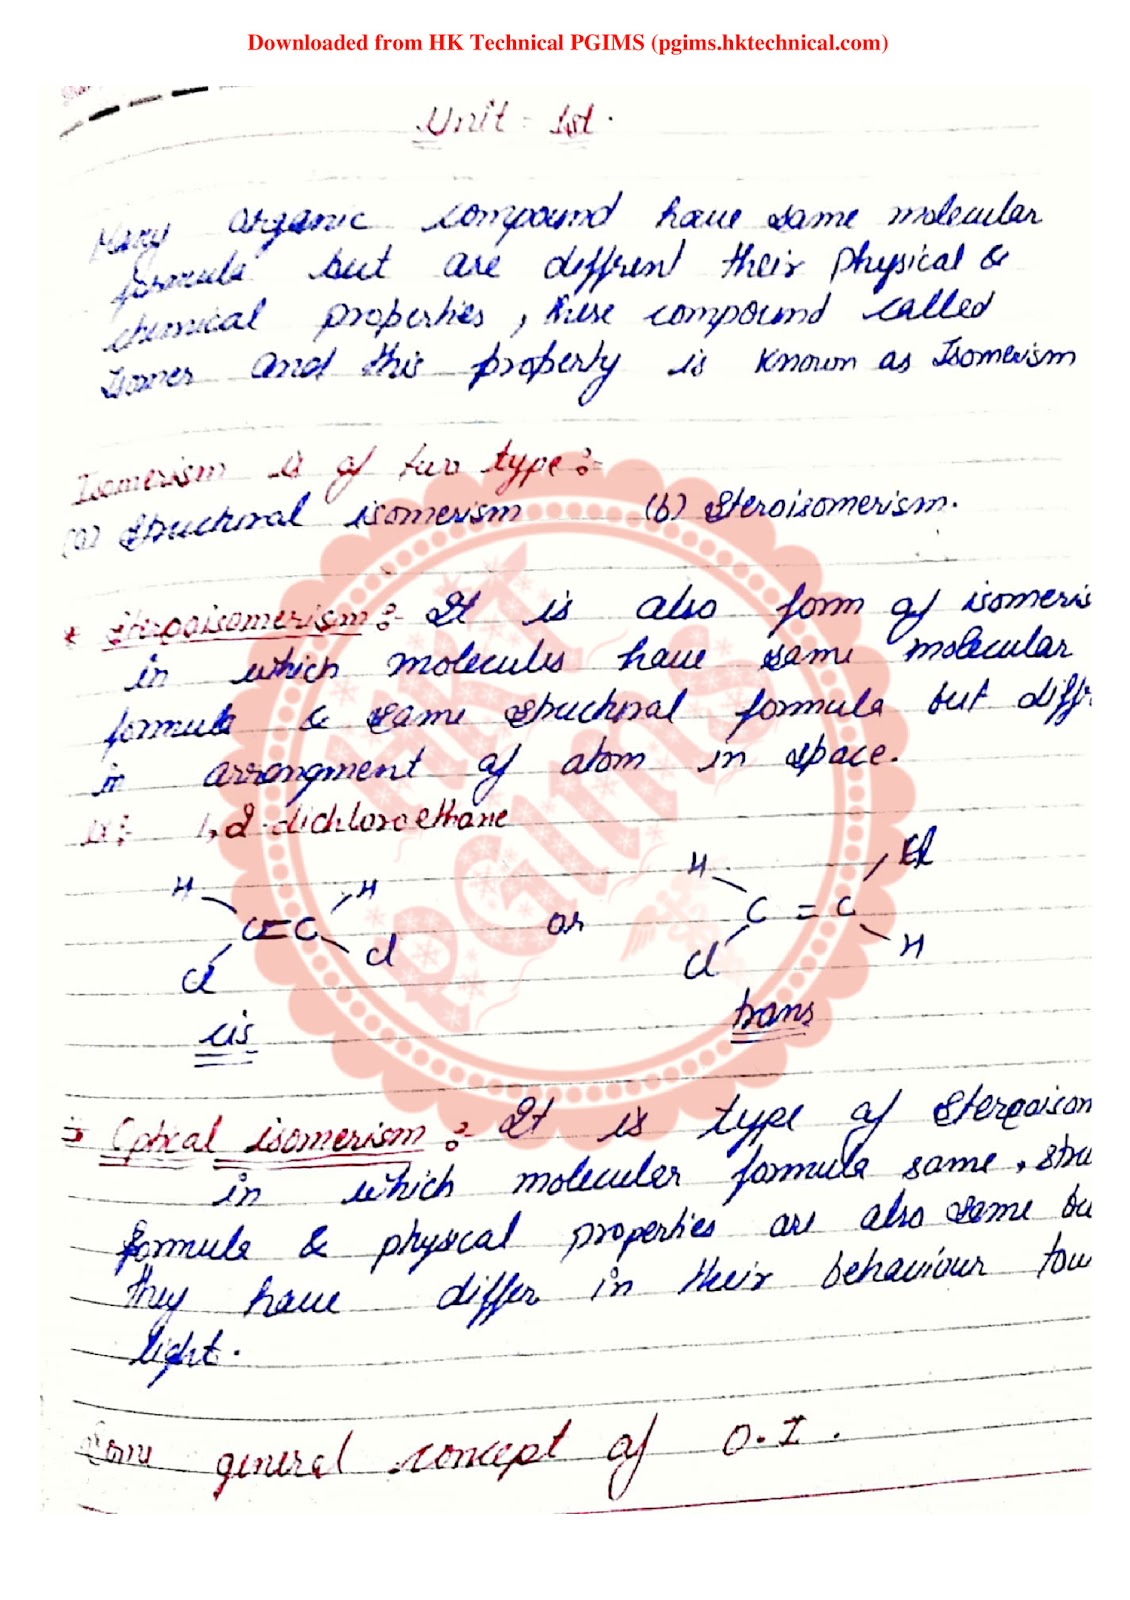 Downloaded from HK Technical PGIMS (pgims.hktechnical.com)
Unit - 1st.
Many organic compound have same molecular
formula but are diffrent their physical &
chemical properties, these compound called
Isomer and this property is known as Isomerism
Isomerism is of two type :-
(a) Structural isomerism (b) Steroisomerism.
* Steroisomerism :- It is also form of isomeris
in which molecules have same molecular
formula & same structural formula but diff
in arrangment of atom in space.
ex:- 1,2-dichloroethane
H H H Cl
C=C or C=C
Cl Cl Cl H
cis trans
Optical isomerism :- It is type of Stereoison
in which molecular formula same, stru
formula & physical properties are also same bu
they have differ in their behaviour tow
light.
Some general concept of O.I.
HKT
PGIMS